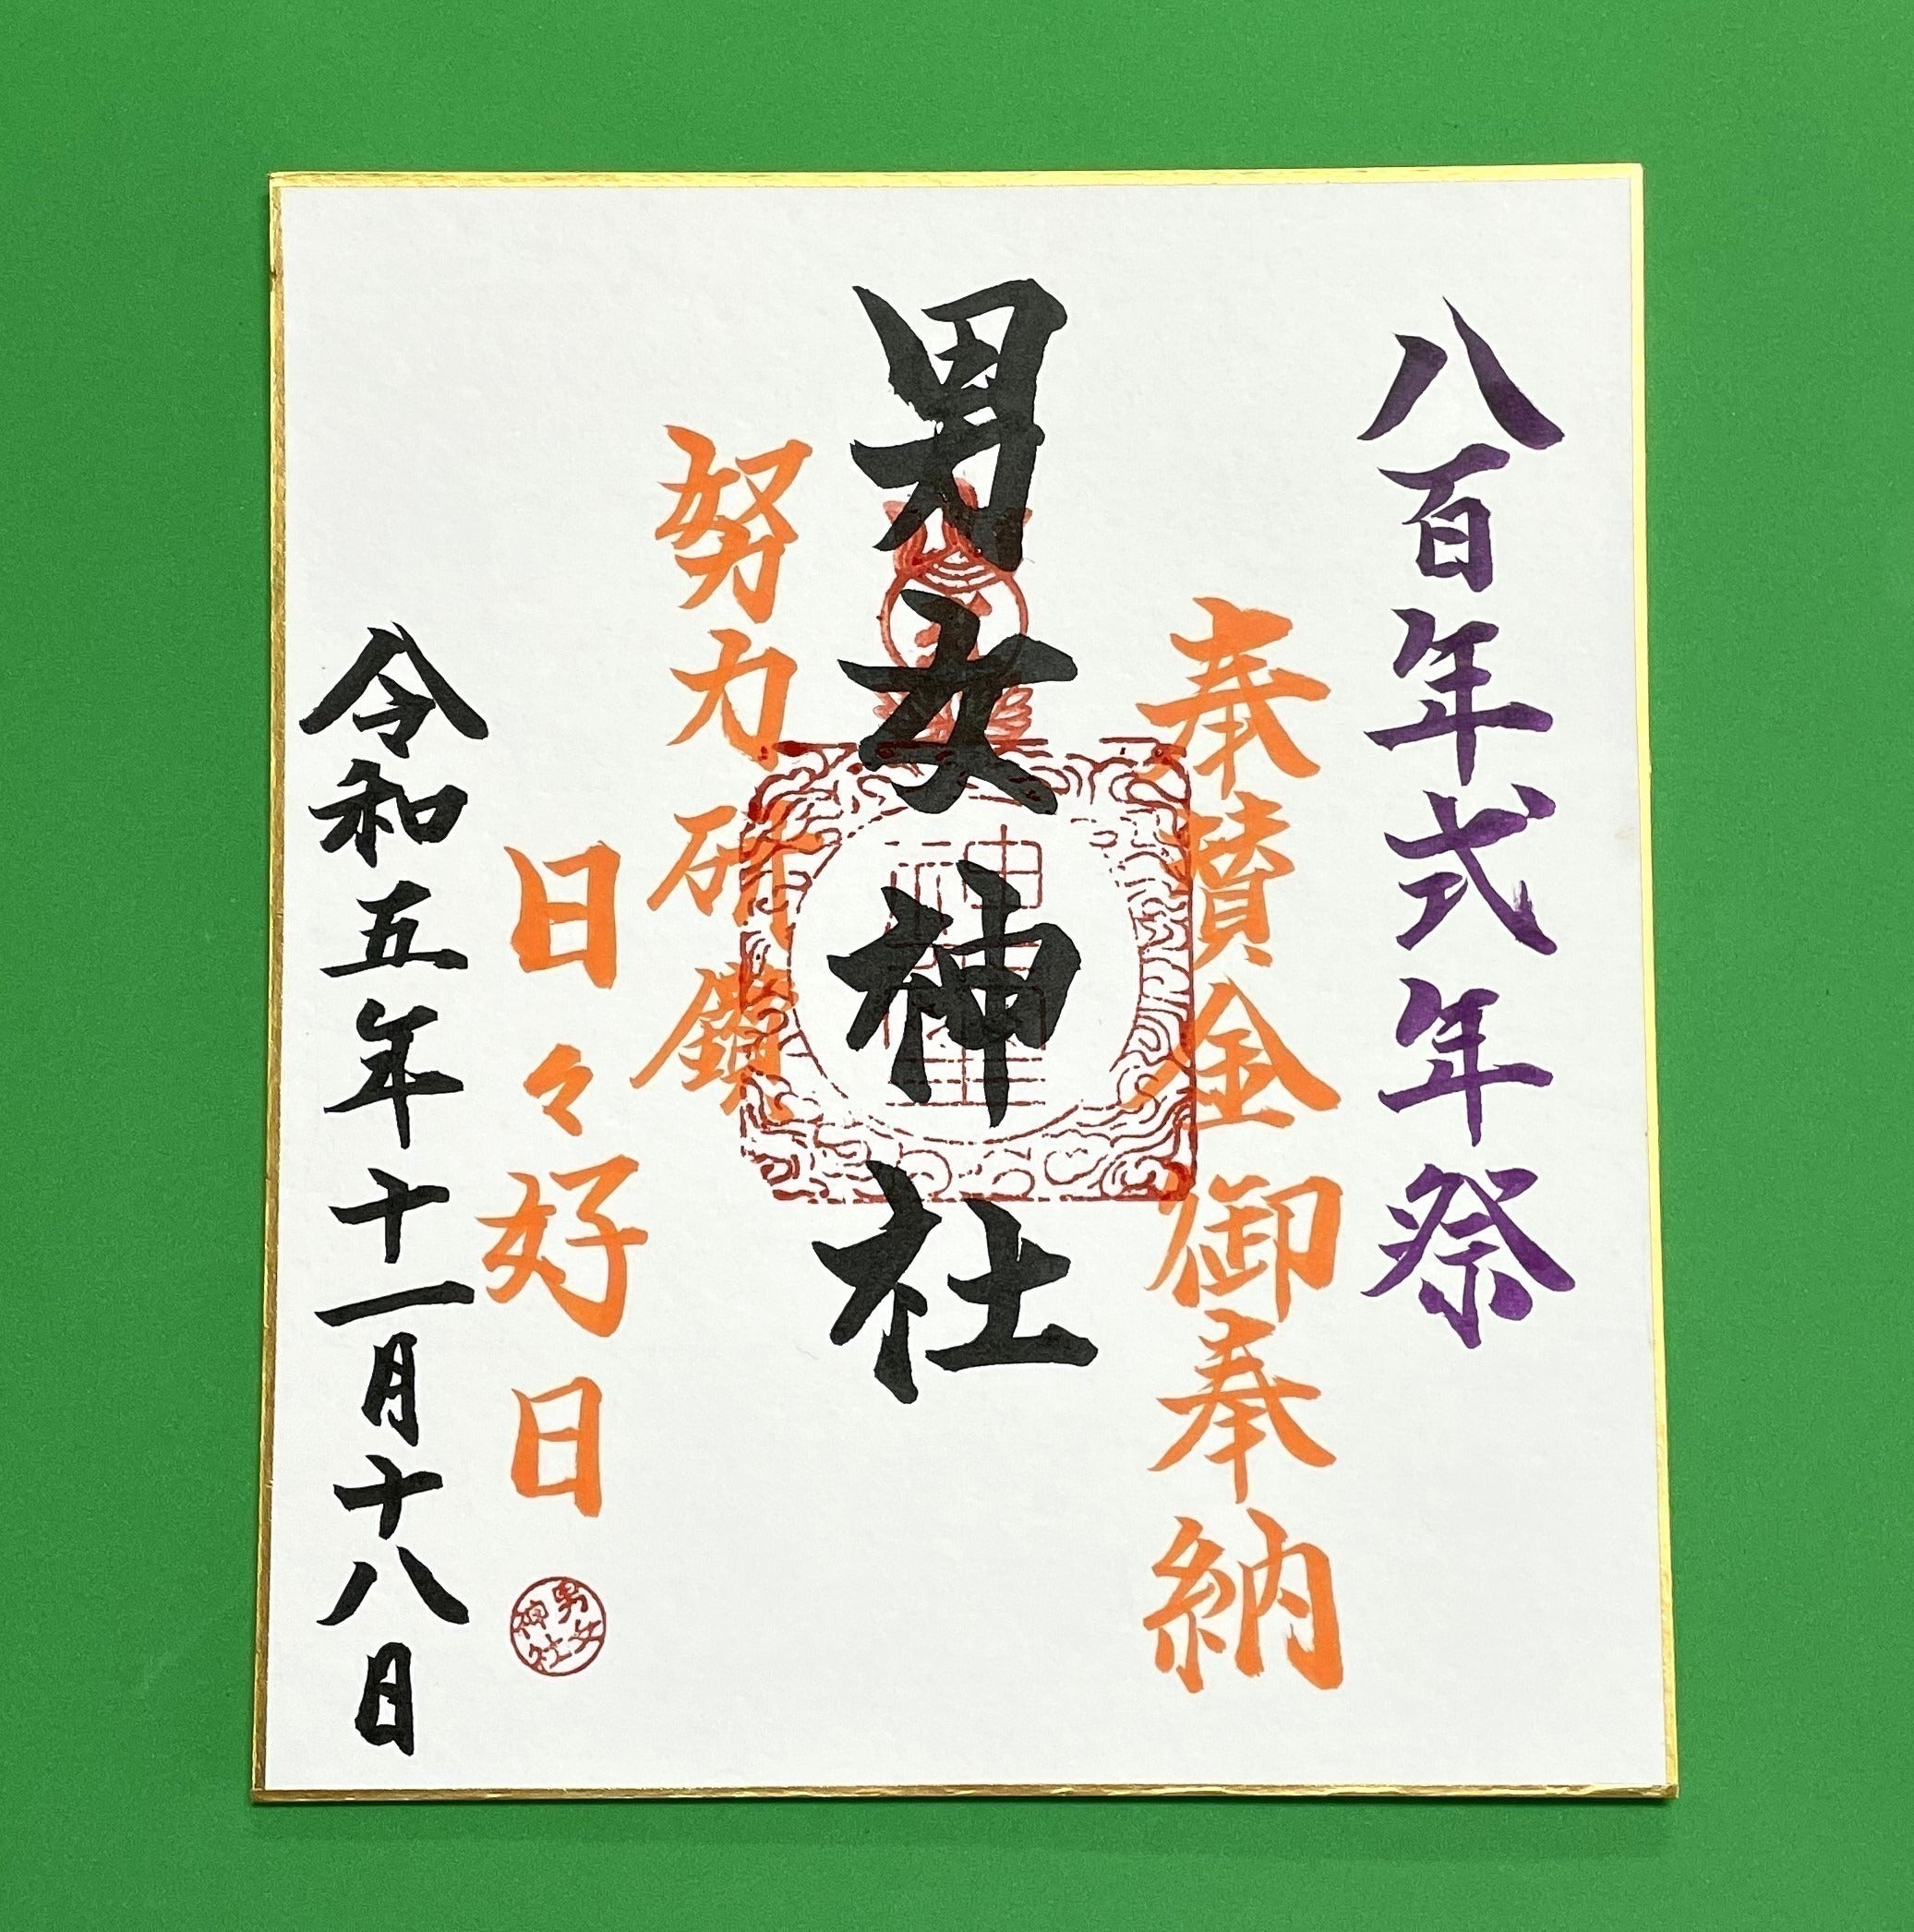 八百年式年祭
奉賛金御奉納
男女神社
努力研鑽
日々好日
男女神社
令和五年十一月十八日